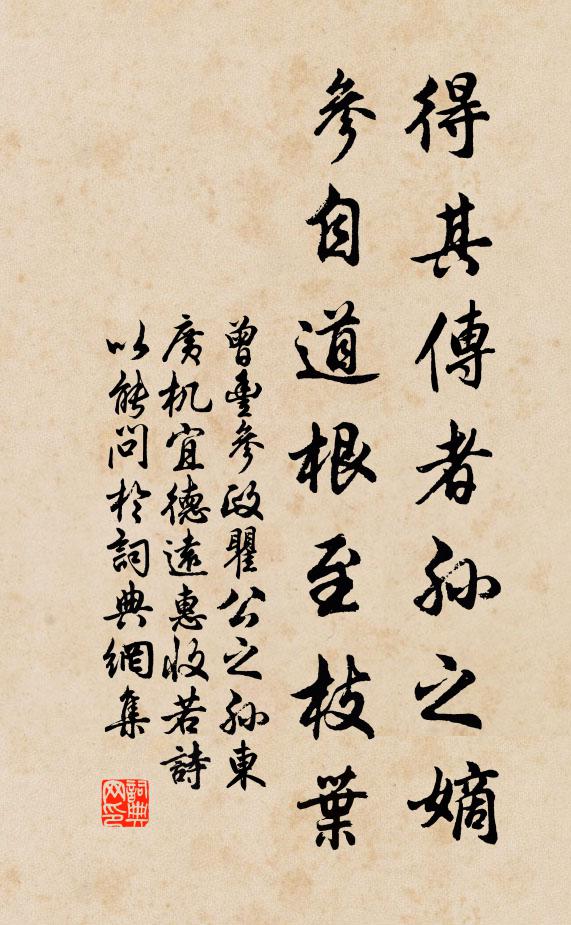 得其傳者孫之嫡
參自道根至枝葉
曾豐參政瞿公之孫東
廣机宜德遠惠收若詩
以能問於詞典網集
詞典網印